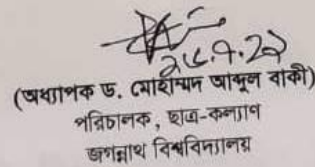 ২৮.৭.২১
(অধ্যাপক ড. মোহাম্মদ আব্দুল বাকী)
পরিচালক, ছাত্র-কল্যাণ
জগন্নাথ বিশ্ববিদ্যালয়